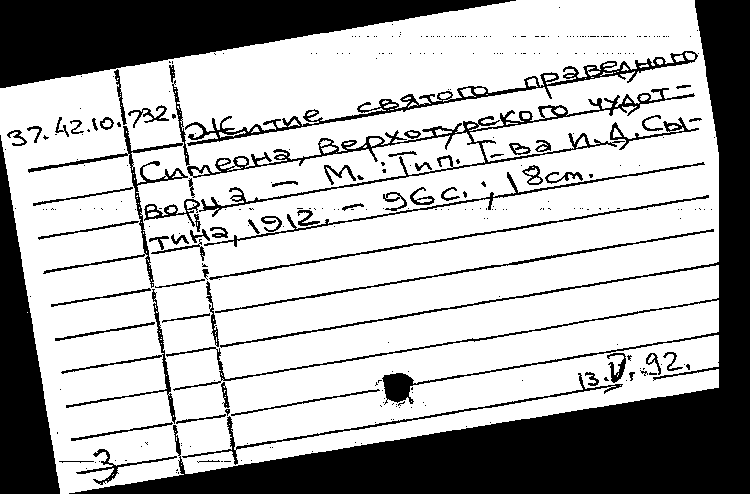 37.42.10.732. Житие святого праведного
Симеона, Верхотурского чудот-
ворца. – М.: Тип. Т-ва И.Д.Сы-
тина, 1912. – 96с.; 18см.
13.V.92.
3